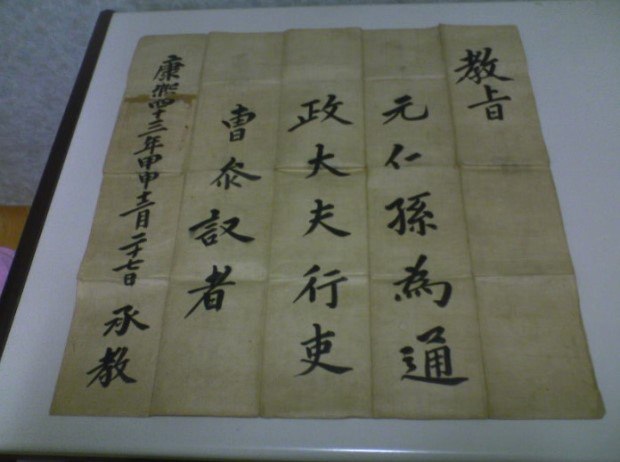 教旨
元仁孫為通
政大夫行吏
曺叅議者
康熙四十三年甲申十二月二十七日 承教